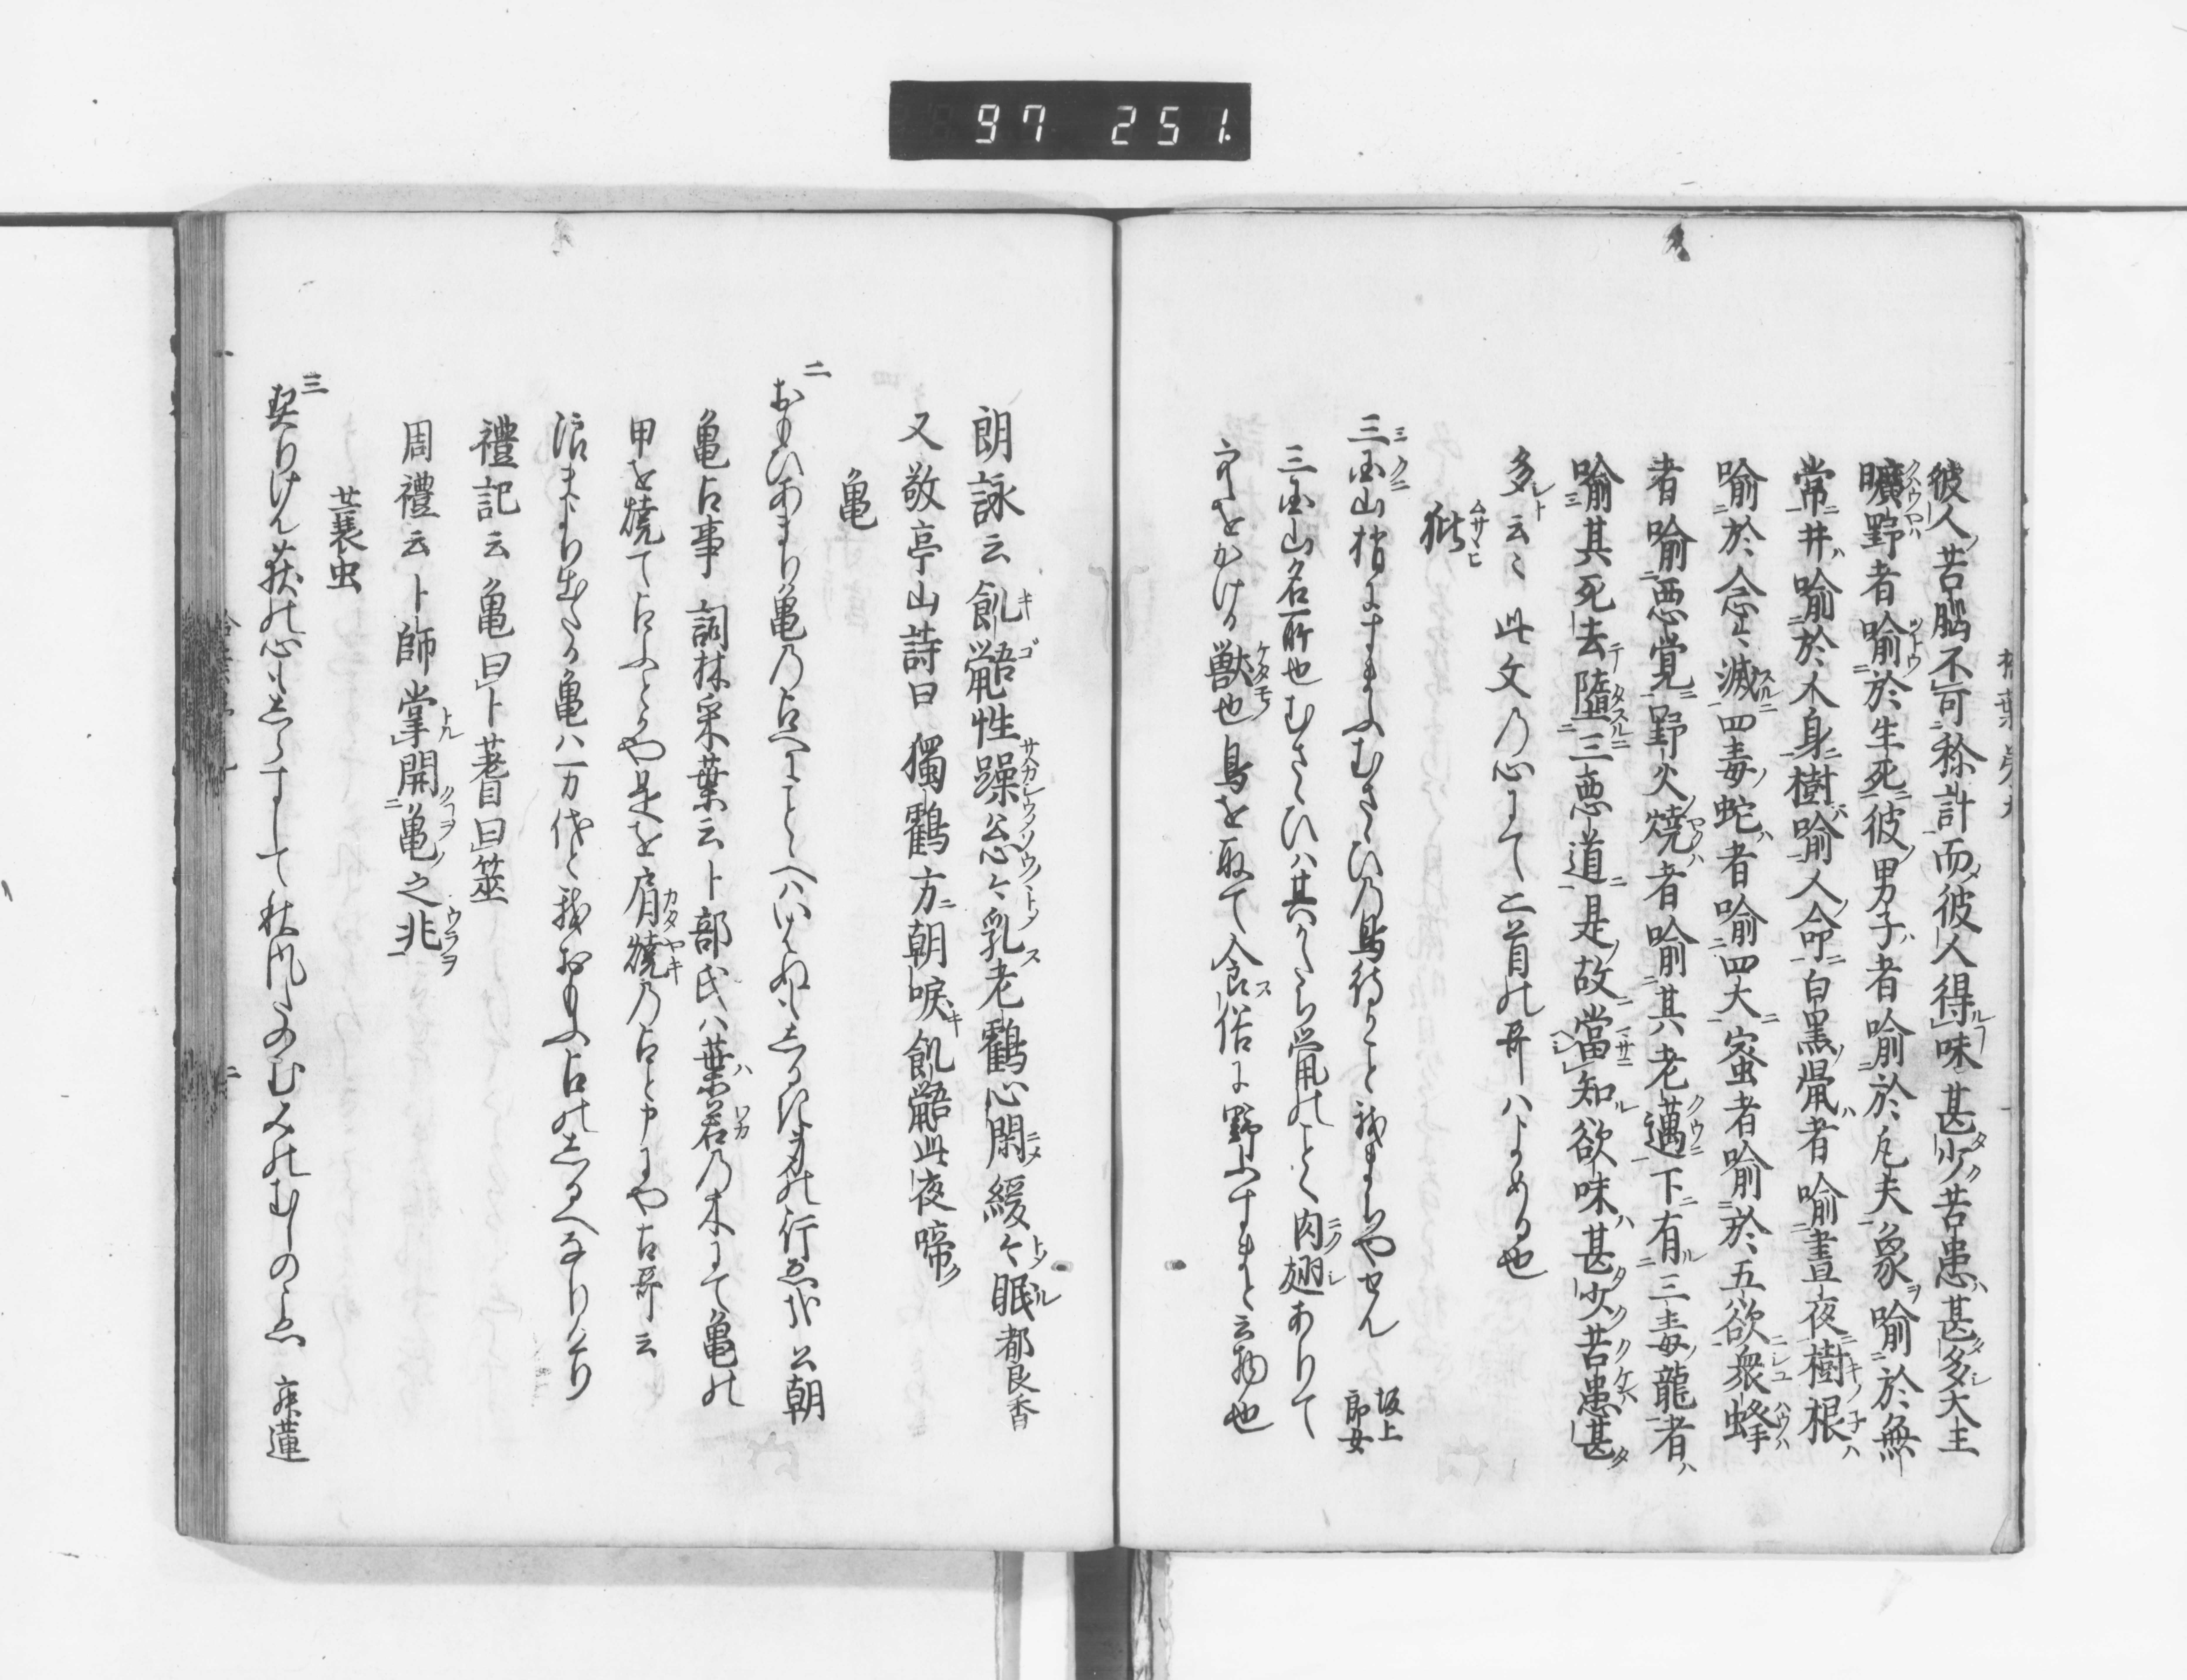 97 251.
彼人苦惱不可称計而彼人得味甚少苦患甚多大王
曠野者喩於生死彼男子者喩於凡夫象喩於無
常井喩於人身樹喩人命白黒鼠者喩晝夜樹根
喩於念々滅四毒蛇者喩四大蜜者喩於五欲衆蜂
者喩悪覚野火焼者喩其老邁下有三毒龍者
喩其死去墮三悪道是故當知欲味甚少苦患甚
多云々 此文乃心にて二首の哥ハよめる也
三国山梢にすまふむさゝひ乃鳥待かと我まちやせん 坂上郎女
三国山名所也むさゝひハ其かたち鼠のことく肉翅ありて
獣也鳥を取て食俗に野ふすまと云物也
朗詠云飢鼯性躁忩々乳老鶴心閑緩々眠 都良香
又敬亭山詩曰 獨鶴方朝唳飢鼯此夜啼
亀
二
おもひあまり亀乃占へにことゝへハ 公朝
亀占事 詞林采葉云卜部氏ハ葉若乃木にて亀の
甲を焼て占ふとかや是を肩焼乃占と申にや古哥云
亀ハ一万代と我おもふ占のしるへなりけり
禮記云亀曰卜蓍曰筮
周禮云卜師掌開亀之兆
蓑虫
三
契りけん荻の心もしらすして秋風たのむみのむしのこゑ 寂蓮